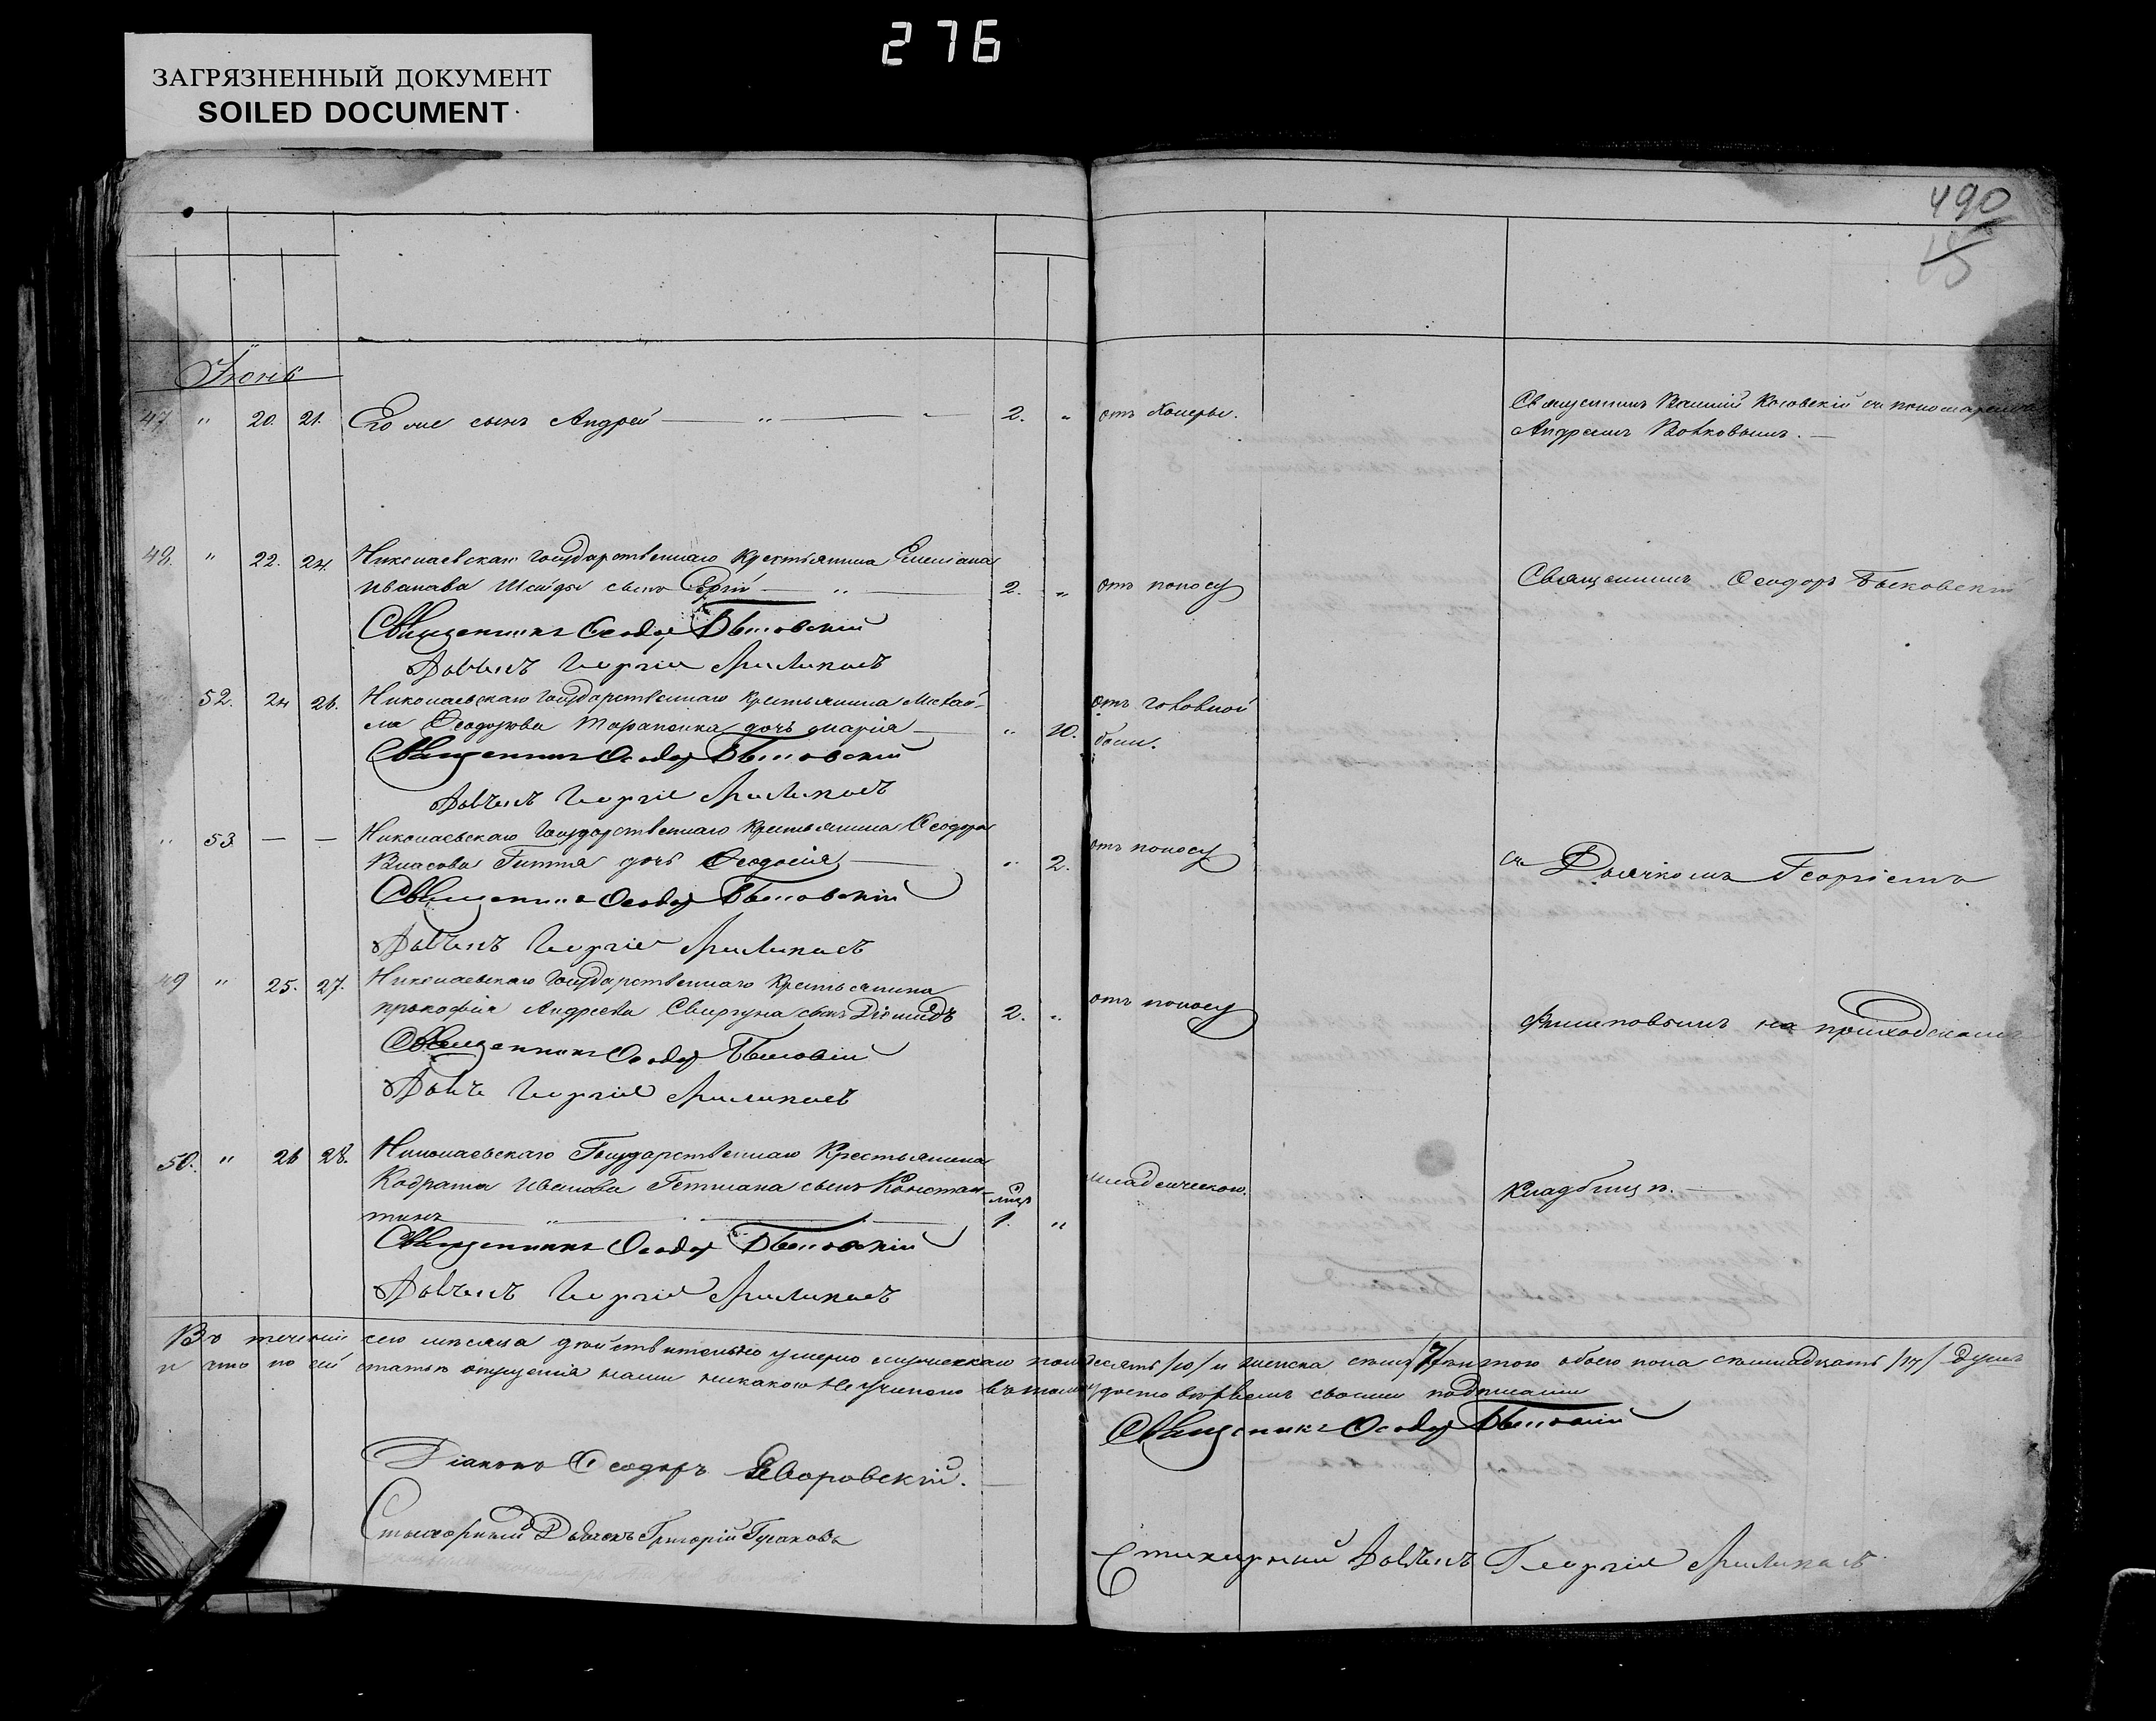 276
ЗАГРЯЗНЕННЫЙ ДОКУМЕНТ
SOILED DOCUMENT
490
15
Іюнь
47. " 20. 21. Его же сынъ Андрей 2. " отъ холеры.
Священникъ Косовскій съ пономаремъ
Андреемъ Волковымъ.
48. " 22. 24. Николаевскаго государственнаго крестьянина Емеліана
Иванова сынъ Сергій 2. " отъ поносу Священникъ Ѳеодоръ Быковскій
Священникъ Ѳеодоръ Быковскій
Дьячекъ Георгій Филиповъ
52. 24 26. Николаевскаго государственнаго крестьянина Михай-
ла Ѳеодорова Тарапонка дочь Марія " 10. отъ головной
боли.
Священникъ Ѳеодоръ Быковскій
Дьячекъ Георгій Филиповъ
" 53 — — Николаевскаго государственнаго крестьянина Ѳеодора
Власова дочь Ѳеодосія " 2. отъ поносу съ Дьячкомъ Георгіемъ
Священникъ Ѳеодоръ Быковскій
Дьячекъ Георгій Филиповъ
49 " 25. 27. Николаевскаго государственнаго крестьянина
Прокофія Андреева Свиргуна сынъ Діомидъ 2. " отъ поносу Филиповымъ на приходскомъ
Священникъ Ѳеодоръ Быковскій
Дьячекъ Георгій Филиповъ
50. " 26 28. Николаевскаго Государственнаго Крестьянина
Кодрата Иванова Гетмана сынъ Констан-
тинъ 1. " младенческой. Кладбищѣ.
Священникъ Ѳеодоръ Быковскій
Дьячекъ Георгій Филиповъ
Въ теченіи сего мѣсяца дѣйствительно умерло мужескаго пола десять /10/ и женска семь /7/ а итого обоего пола семнадцать /17/ душъ
и что по сей статьѣ опущенія нами никакого не учинено въ томъ удостовѣряемъ своими подписами
Священникъ Ѳеодоръ Быковскій
Діаконъ Ѳеодоръ Яворовскій.
Стихарный Дьячекъ Григорій
Стихарный Дьячекъ Георгій Филиповъ